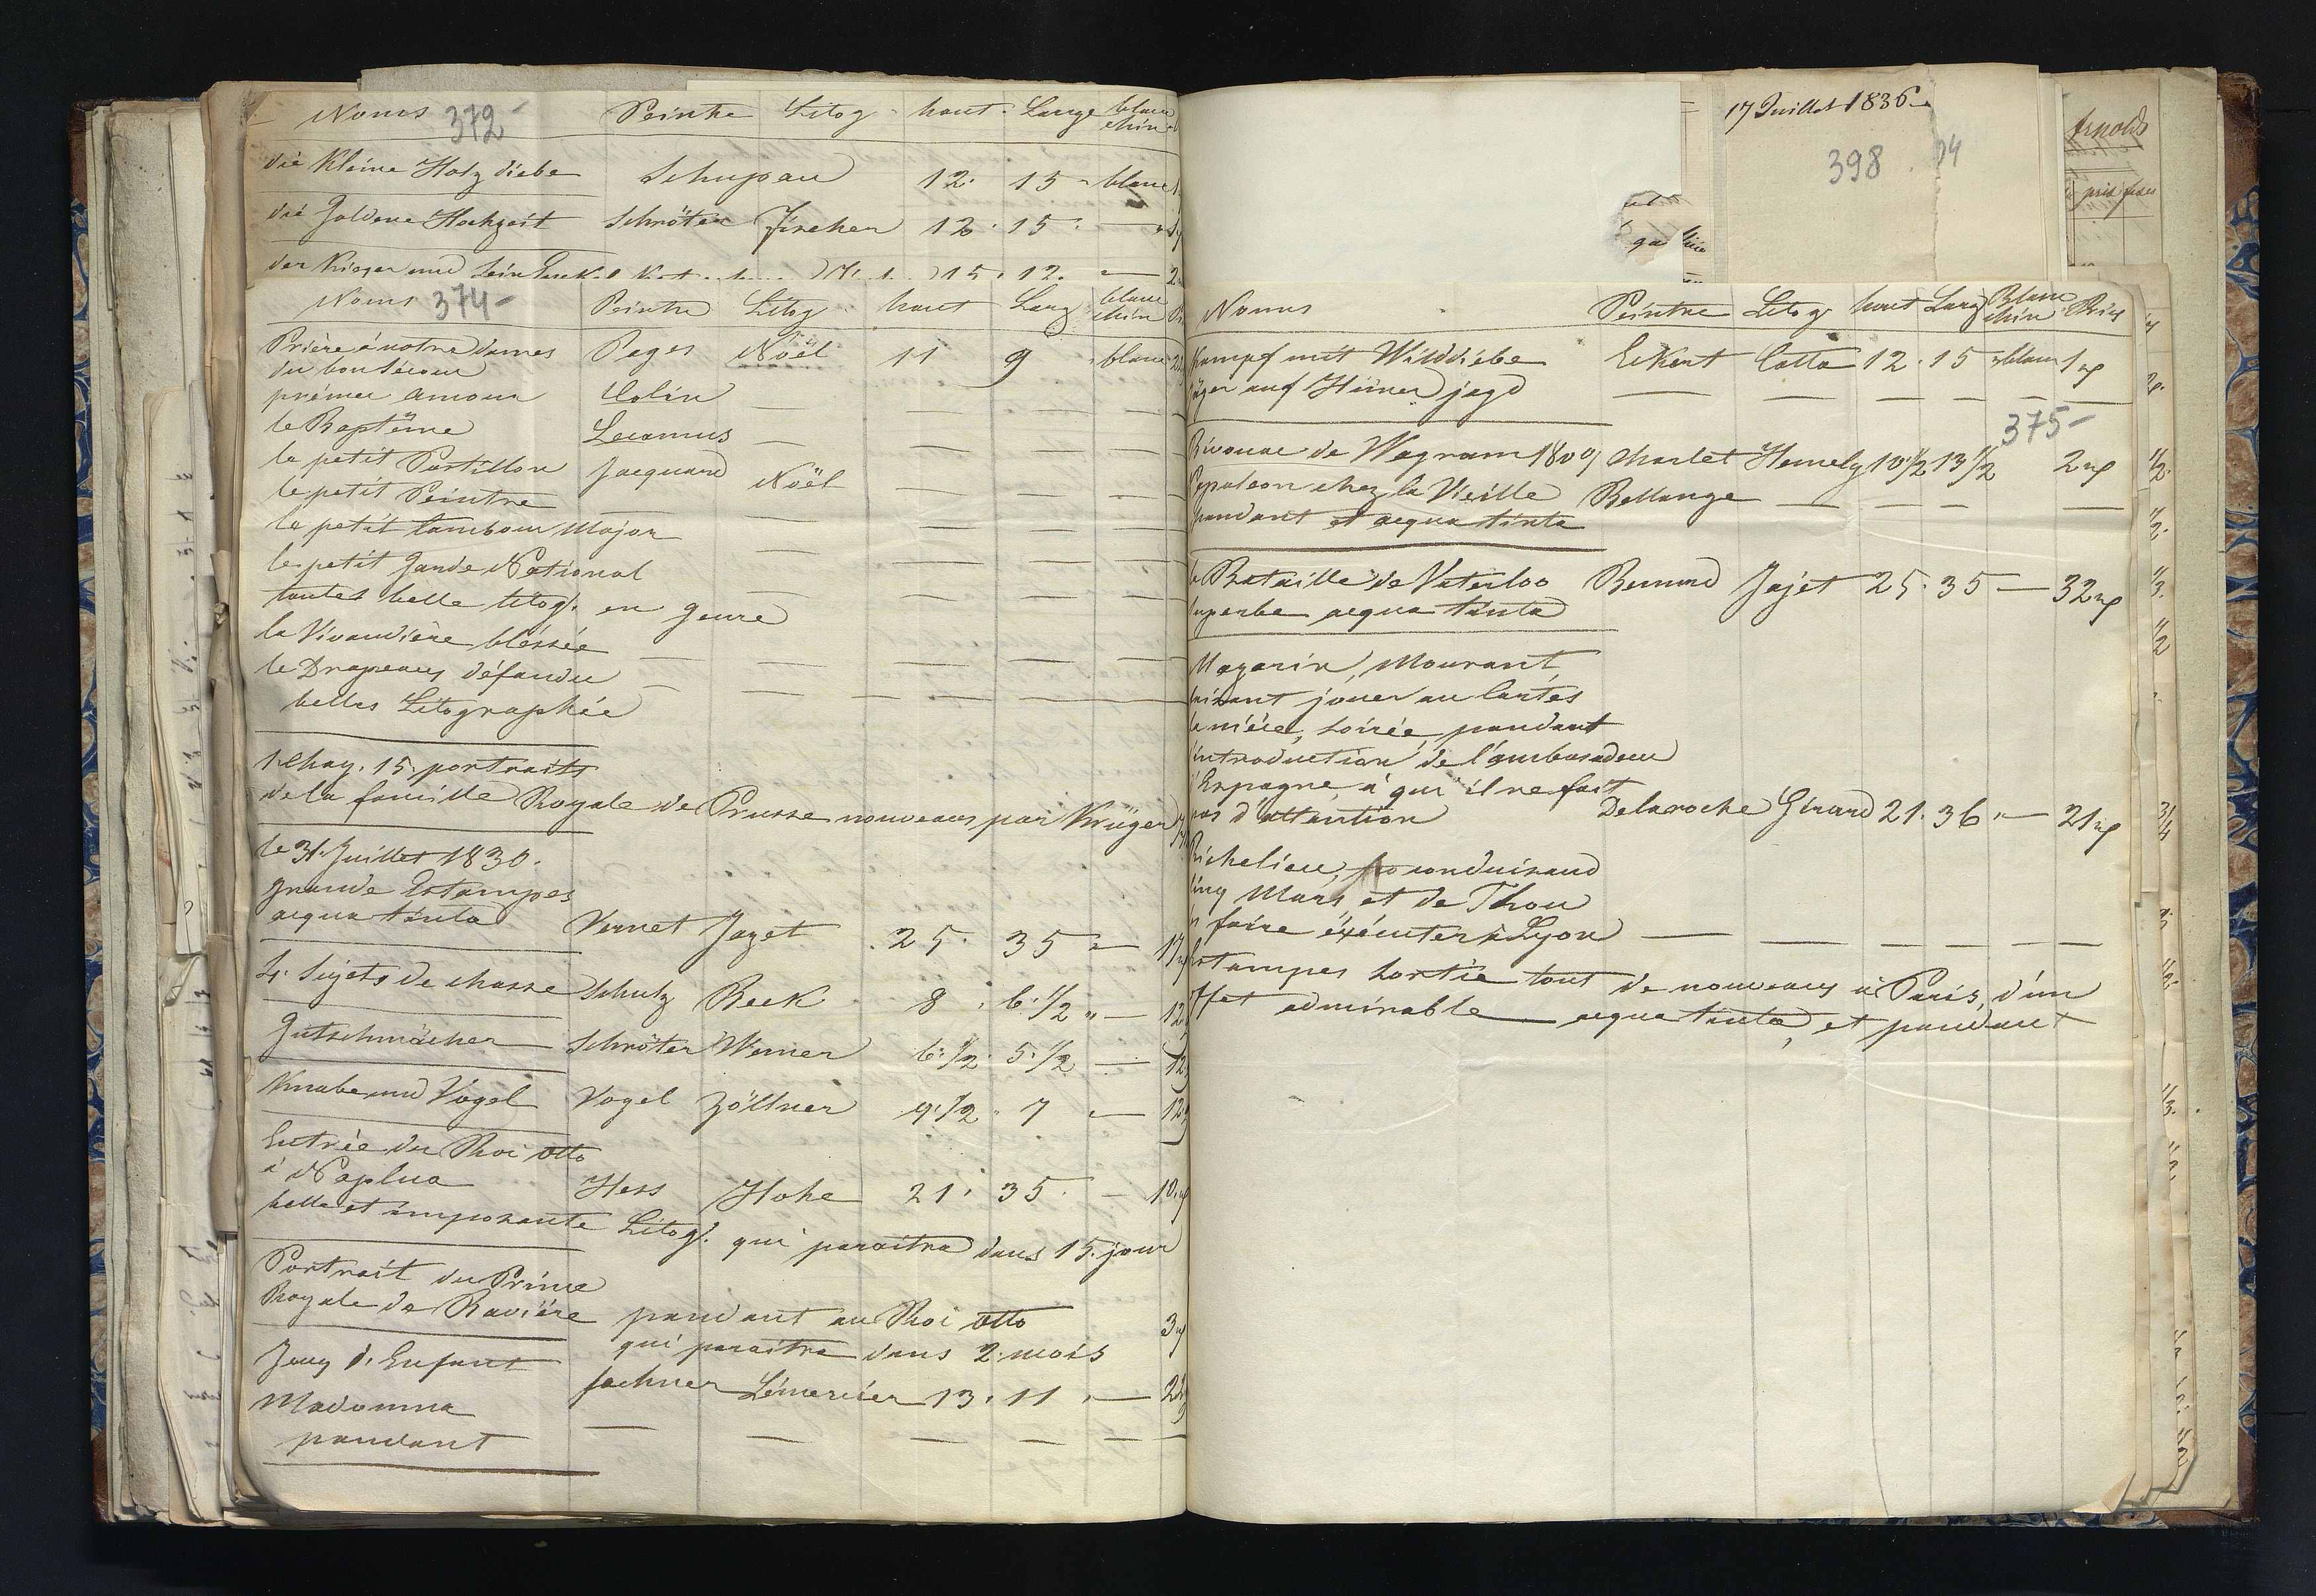 Noms 372 Peintre Litog haut Large blanc chin
die Kleine Holz diebe Schupau 12 15 blanc
die Goldene Hochzeit Schröter Fircher 12 15
der Krieger und sein 15 12
Noms 374 Peintre Litog haut Larg blanc chin
Prière á notre dames Pages Noël 11 9 blanc
du bon Sécour
prémier amour Colin —
le Baptême Lecomus —
le petit Postillon Jacquand Noël
le petit Peintre
le petit tambour Major
le petit Garde National
toutes belle litog. en genre
la Vivandière bléssée
le Drapeaux défendu
belles Litographée
1 chay. 15 portraits
de la famille Royale de Prusse nouveaux par Krüger
le 31 Juillet 1830.
grande Estampes
aequa tinta Vernet Jazet 25 35 — 17
4 Sujets de chasse Schulz Beck 8 6 1/2 — 12
Gutschmäcker Schröter Werner 6 1/2 5 1/2 — 12
Knabe und Vogel Vogel Zöllner 9 1/2 7 — 12
Entrée du Roi Otto
á Noplua Hess Hohe 21 35 — 10
belle et imposante Litog. qui paraitra dans 15 jour
Portrait du Prince
Royale de Bavière pendant au Roi Otto 3
qui paraitra dans 2 mois
Jeux d'Enfant Fechner Lémercier 13 11 —
Madonna — — — — —
pendant
17 Juillet 1836
398
Arnold
prix
Noms Peintre Litog haut Larg Blanc chin Prix
Kampf mit Wilddiebe Eckert Cotta 12 15 blanc 1
Jäger auf Hüner jagd — — — — — —
375
Bivouac de Wagram 1809 Charlet Hemely 10 1/2 13 1/2 2
Napoleon chez la Vieille Bellange — — — —
pendant et aequa tinta
la Bataille de Vaterloo Bernard Jajet 25 35 — 32
superbe aequa tinta
Mazarin, Mourant,
faisant jouer au Cartes
la nièce, soirée, pendant
l'introduction de l'ambasadeur
d'Espagne, á qui il ne fait
pas d'attention Delaroche Girard 21 36 — 21
Richelieu, conduisand
Cinq Mars et de Thou
faire éxécuter á Lyon — — — — — —
Estampes sortie tout de nouveaux á Paris, d'un
effet admirable — aequa tinta, et pendant